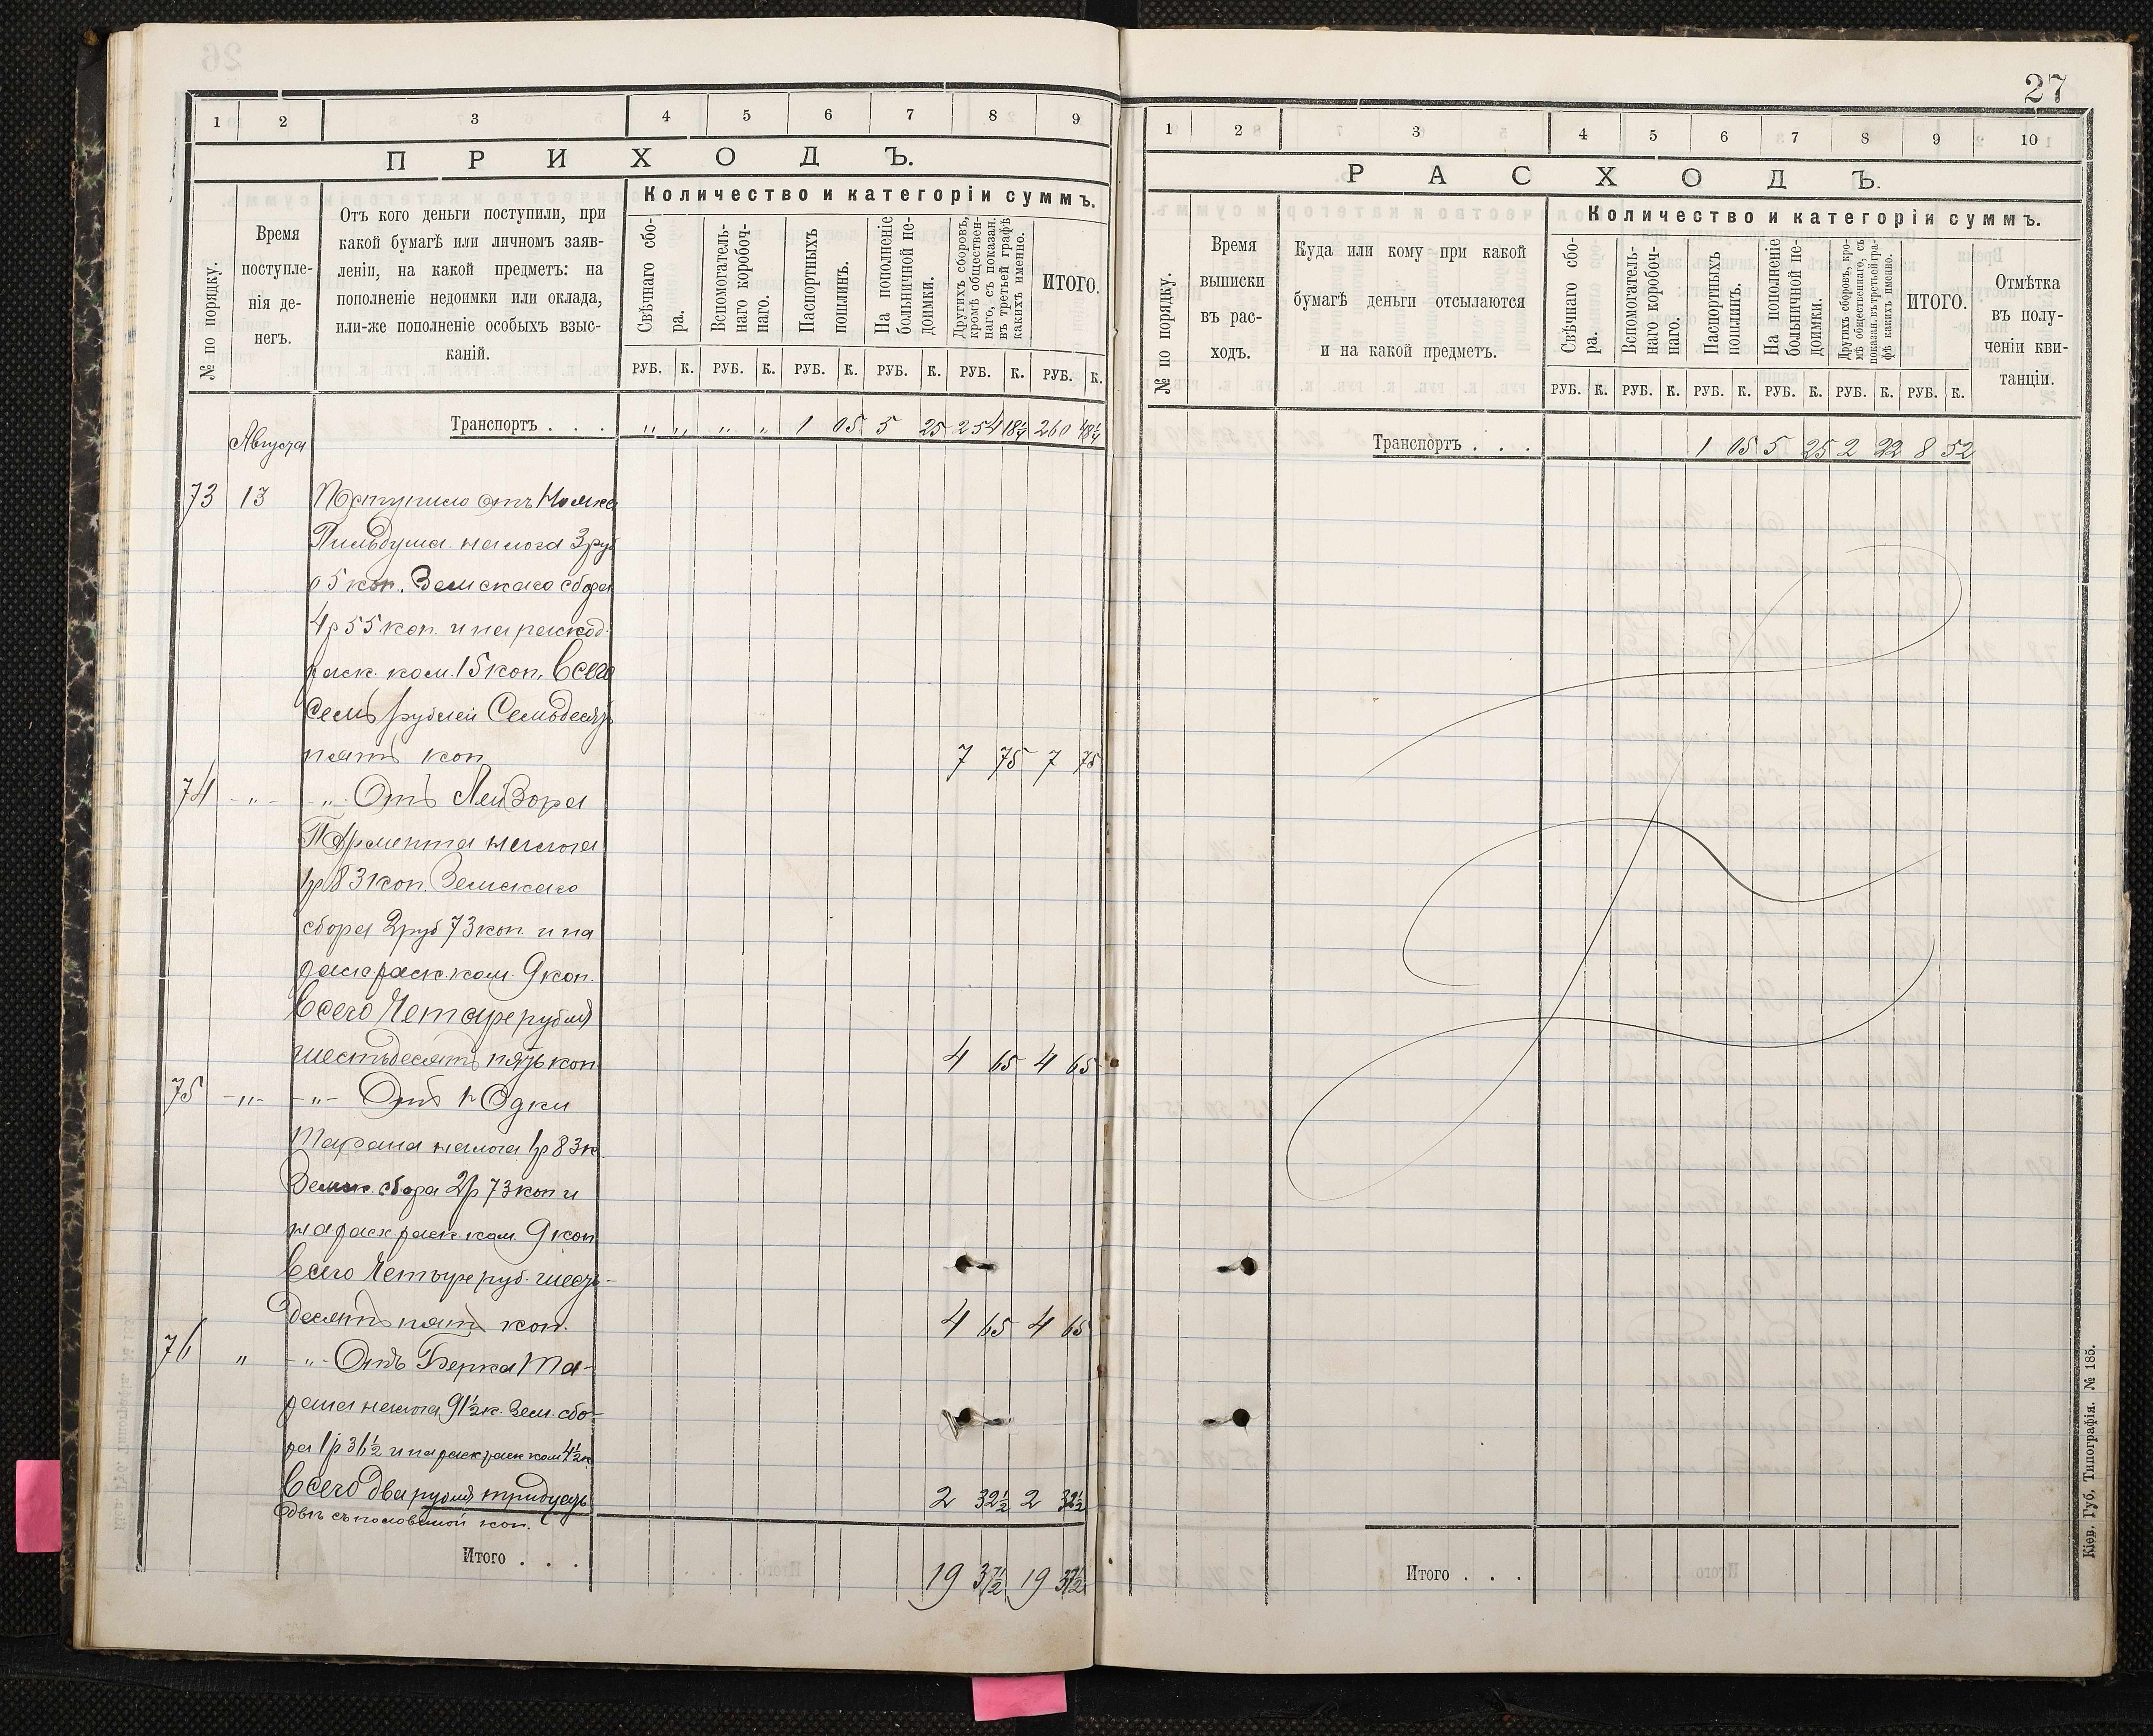 27
1 2 3 4 5 6 7 8 9
ПРИХОДЪ.
№ по порядку.
Время
поступле-
нія де-
негъ.
Отъ кого деньги поступили, при
какой бумагѣ или личномъ заяв-
леніи, на какой предметъ: на
пополненіе недоимки или оклада,
или-же пополненіе особыхъ взыс-
каній.
Количество и категоріи суммъ.
Свѣчнаго сбо-
ра.
Вспомогатель-
наго коробоч-
наго.
Паспортныхъ
пошлинъ.
На пополненіе
больничной не-
доимки.
Другихъ сборовъ,
кромѣ обществен-
наго, съ показан.
въ третьей графѣ
какихъ именно.
ИТОГО.
РУБ. К. РУБ. К. РУБ. К. РУБ. К. РУБ. К. РУБ. К.
Транспортъ . . . „ „ „ „ 1 05 5 25 254 18¼ 260 48¼
Августа
73 13 Поступило отъ
налога 3 руб
05 коп. Земскаго сбора
4 р 55 коп. и на расход.
раск. ком. 15 коп. Всего
Семь рублей Семьдесятъ
пять коп 7 75 7 75
74 -„- -„- Отъ Лейзора
налога
1 р 83 коп. Земскаго
сбора 2 руб 73 коп. и на
расх раск. ком. 9 коп.
Всего Четыре рубля
шестьдесятъ пять коп 4 65 4 65
75 -„- -„- Отъ
Тараша налога 1 р 83 к.
Земск. сбора 2 р 73 коп и
на расх. раск. ком. 9 коп
Всего Четыре руб. шесть-
десятъ пять коп. 4 65 4 65
76 „ -„- Отъ Берка Та-
раша налога 91½ к. Зем. сбо-
ра 1 р 36½ и на расх раск ком 4½ к
Всего два рубля тридцать 2 32½ 2 32½
двѣ съ половиной коп.
Итого . . . 19 37½ 19 37½
1 2 3 4 5 6 7 8 9 10
РАСХОДЪ.
№ по порядку.
Время
выписки
въ рас-
ходъ.
Куда или кому при какой
бумагѣ деньги отсылаются
и на какой предметъ.
Количество и категоріи суммъ.
Свѣчнаго сбо-
ра.
Вспомогатель-
наго коробоч-
наго.
Паспортныхъ
пошлинъ.
На пополненіе
больничной не-
доимки.
Другихъ сборовъ, кро-
мѣ общественнаго, съ
показан. въ третьей гра-
фѣ какихъ именно.
ИТОГО.
Отмѣтка
въ полу-
ченіи кви-
танціи.
РУБ. К. РУБ. К. РУБ. К. РУБ. К. РУБ. К. РУБ. К.
Транспортъ . . . 1 05 5 25 2 22 8 52
Итого . . .
Кіев. Губ. Типографія. № 185.